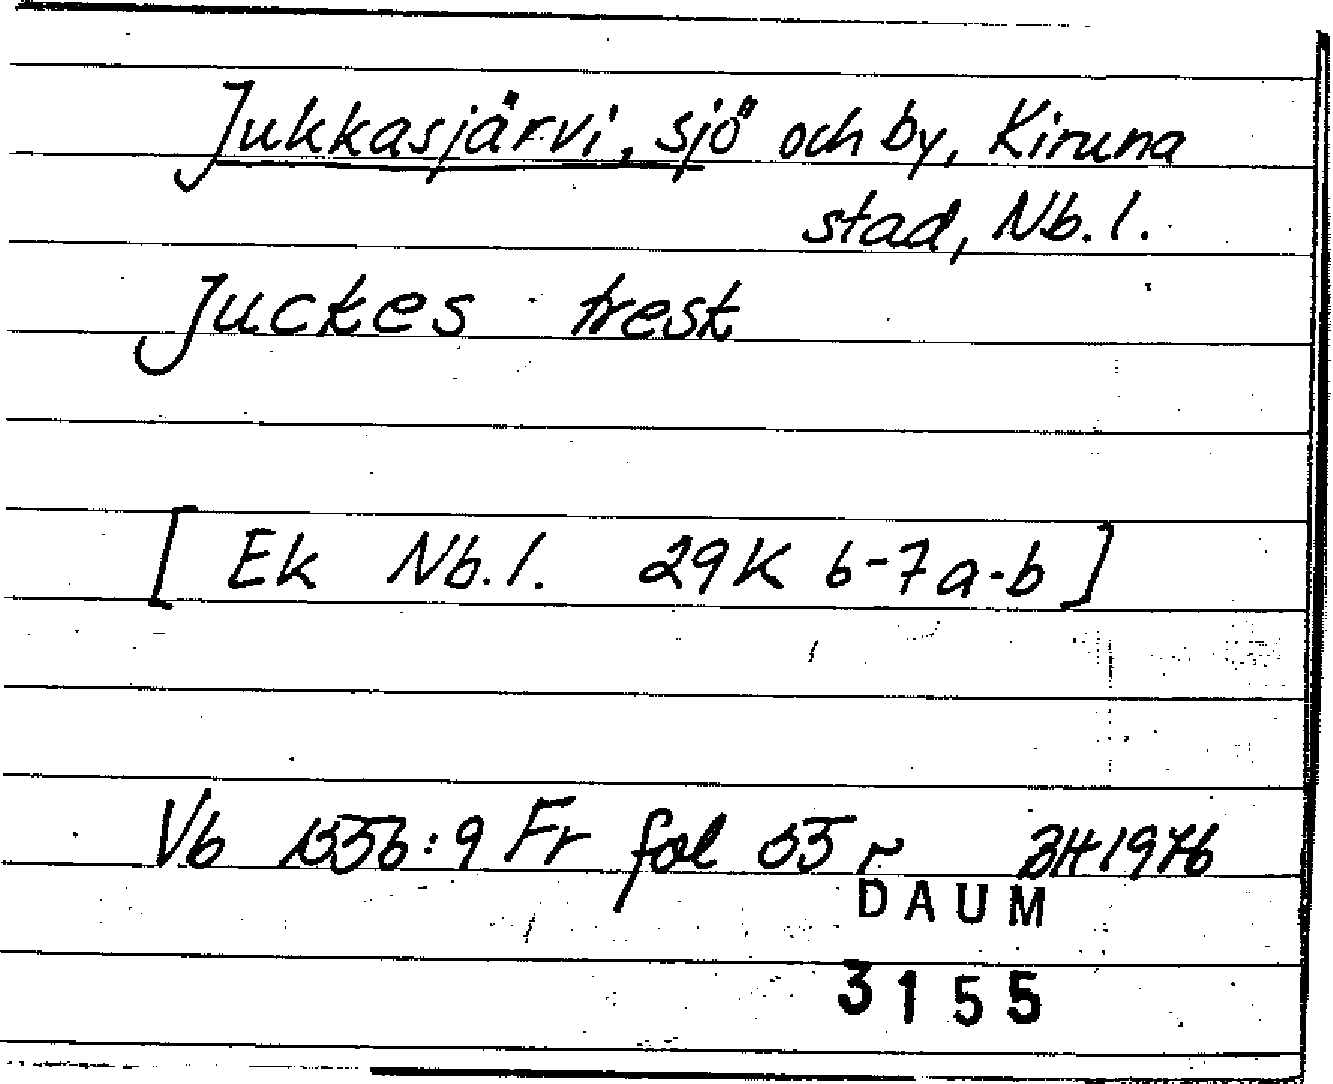 Jukkasjärvi, sjö och by, Kiruna
stad, Nb. l.
Juckes trest
[ Ek Nb. l. 29K 6-7a-b ]
Vb 1556:9 Fr fol 53 r BH 1976
DAUM
3155